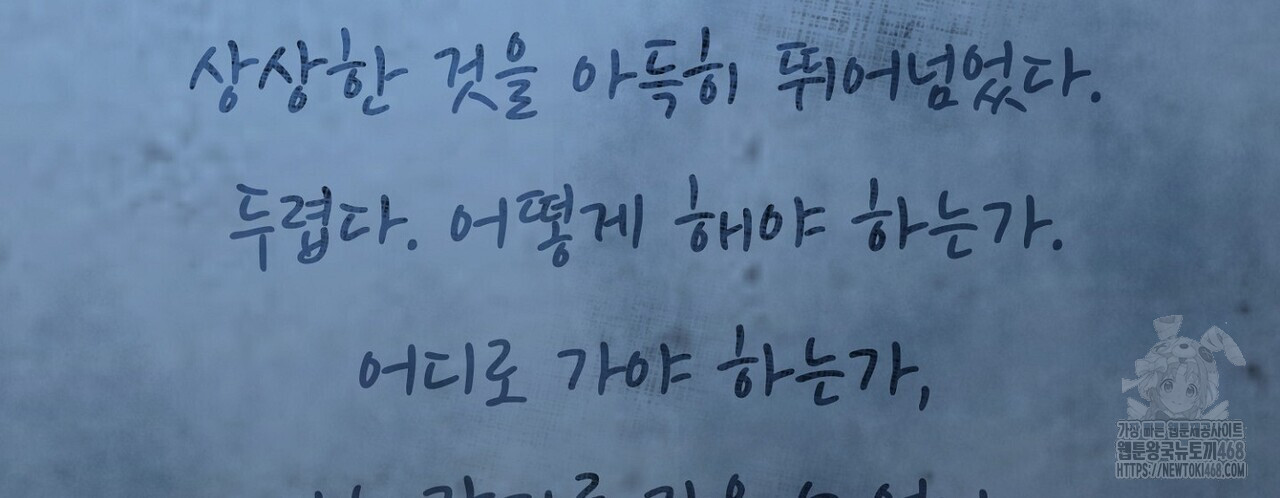 상상한 것을 아득히 뛰어넘었다.
두렵다. 어떻게 해야 하는가.
어디로 가야 하는가,
가장 빠른 웹툰제공사이트
웹툰왕국뉴토끼468
HTTPS://NEWTOKI468.COM